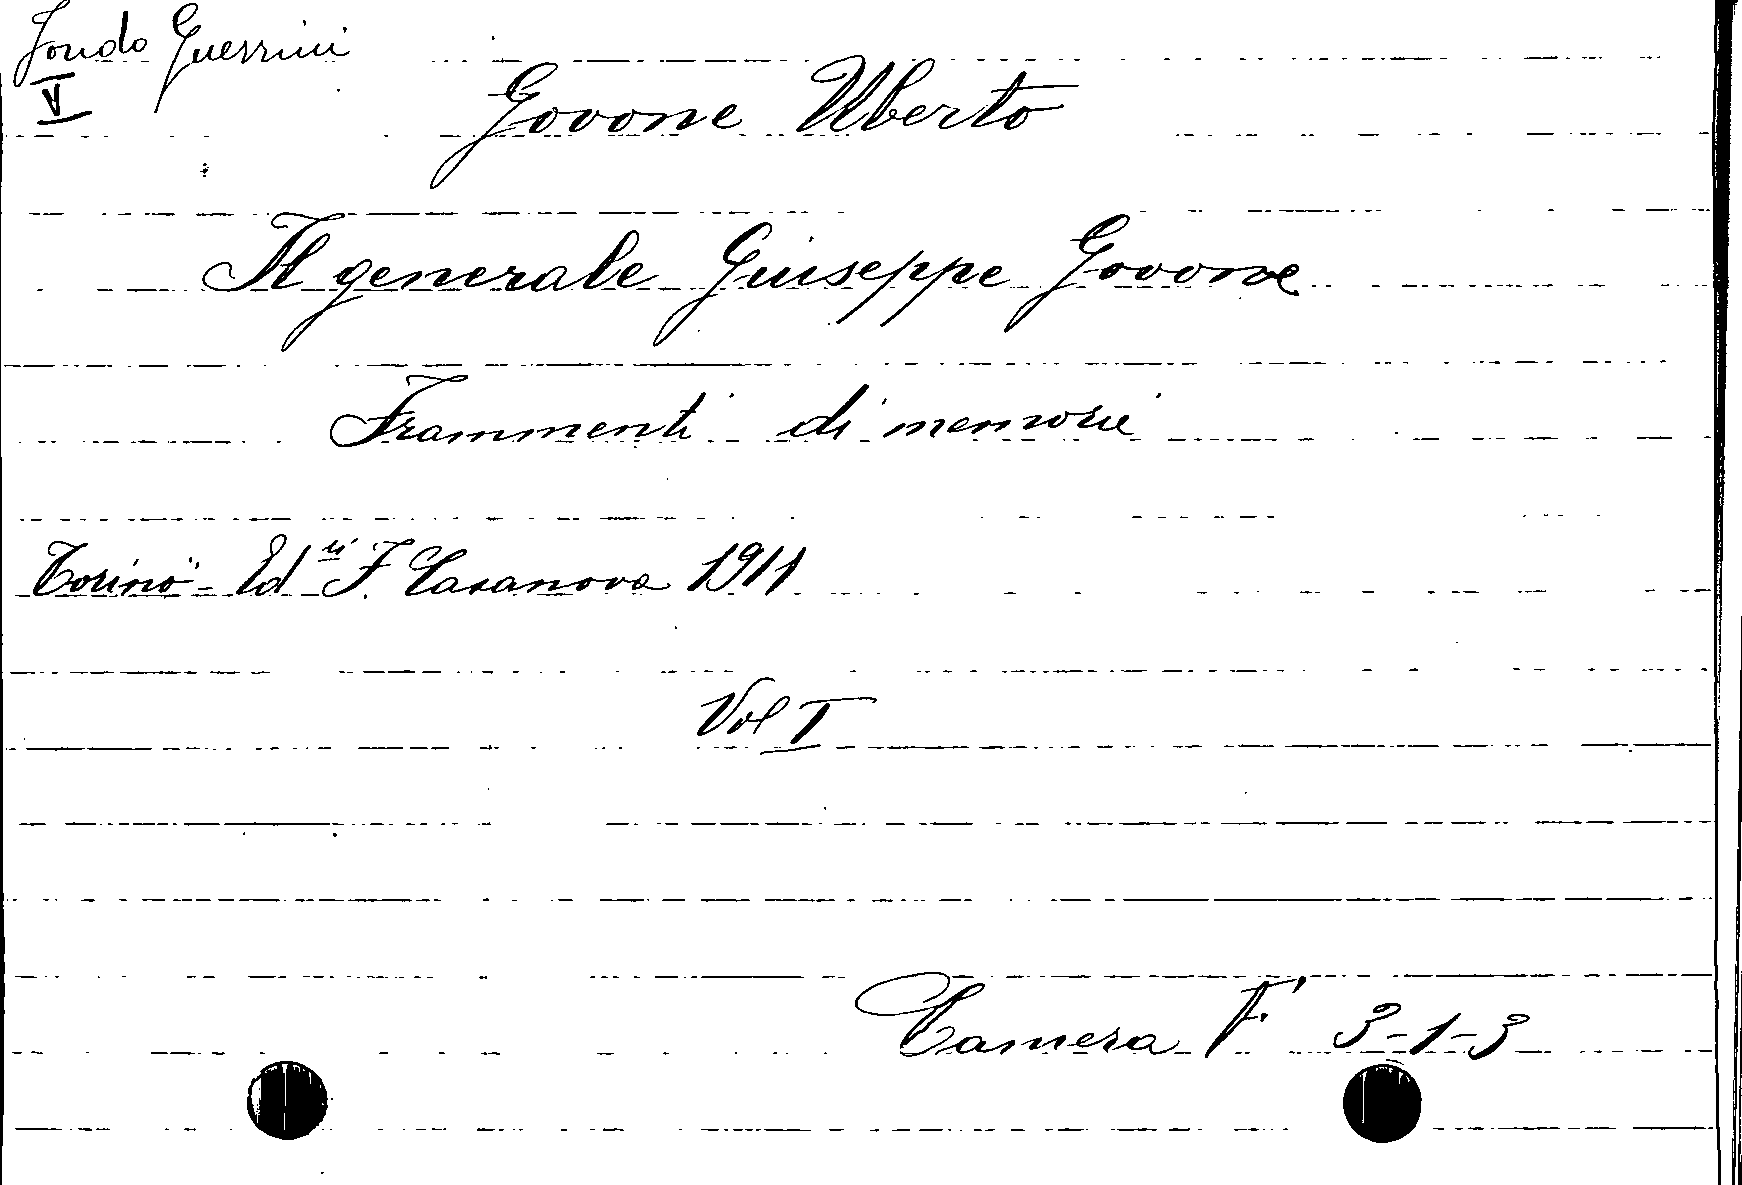 Fondo Guerrini
V
Govone Uberto
Il generale Giuseppe Govone
Frammenti di memorie
Torino - Ed.ri F. Casanova 1911
Vol I
Camera F 3-1-3